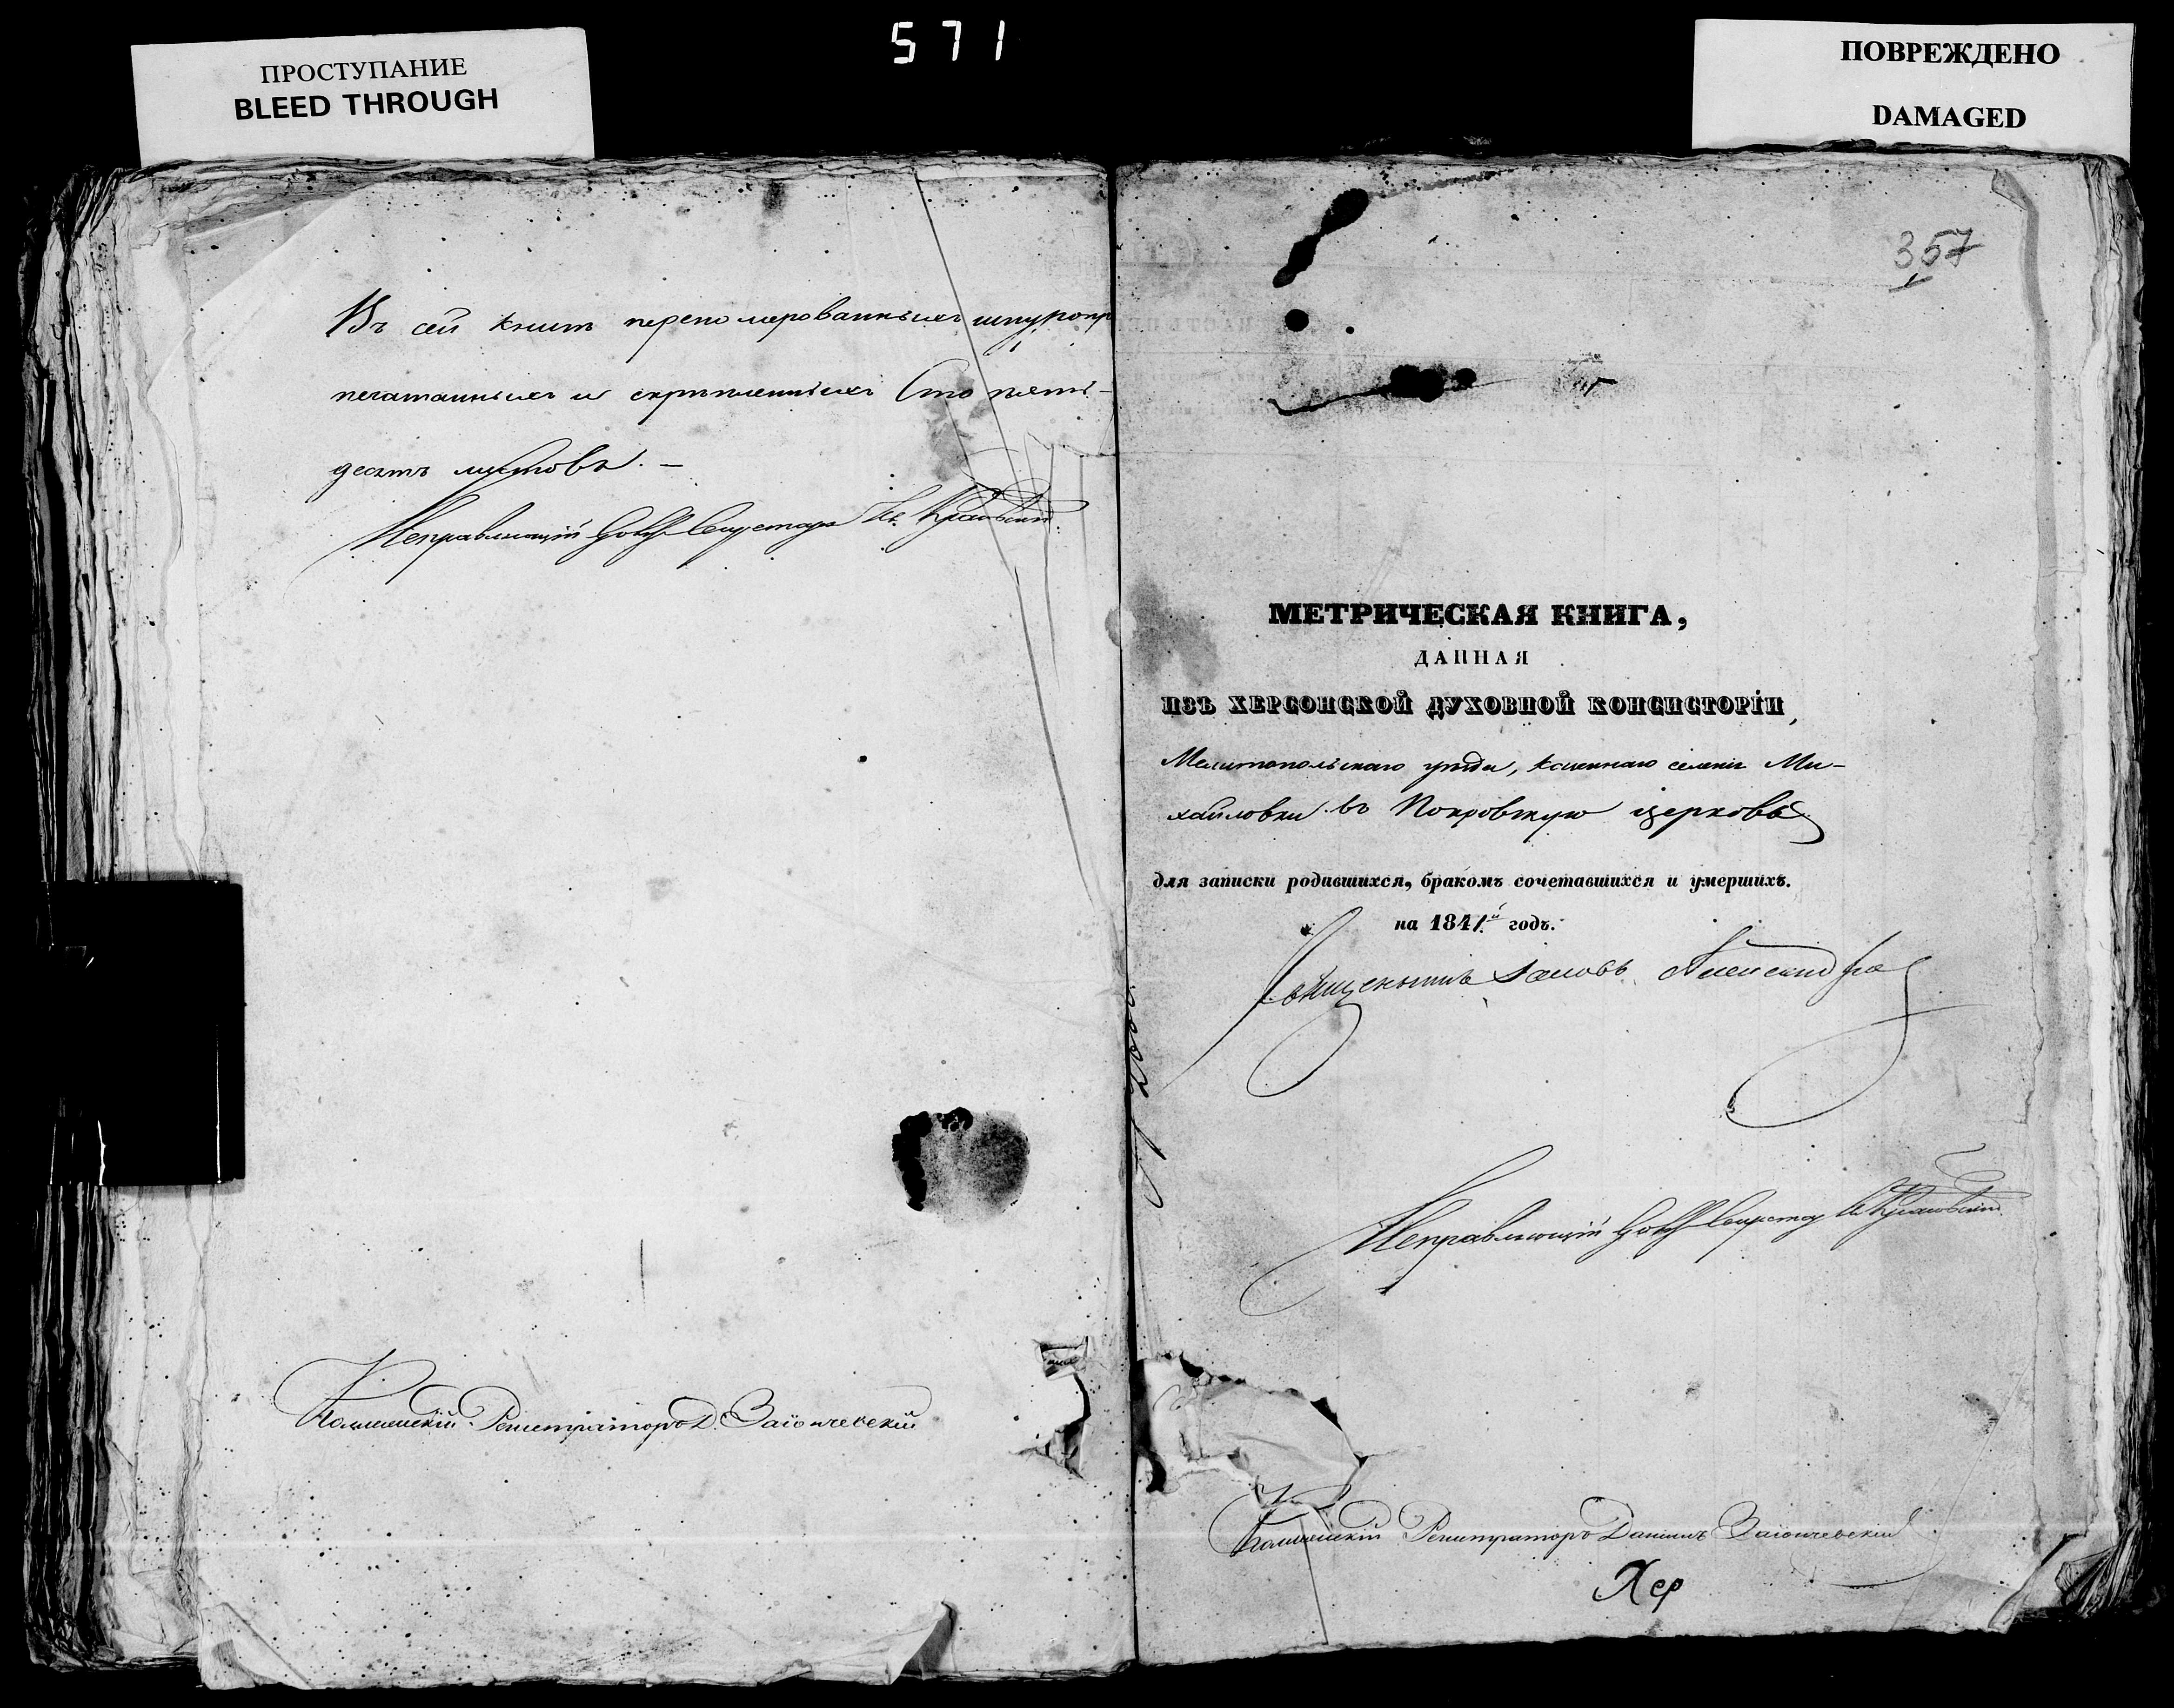 571
ПРОСТУПАНИЕ
BLEED THROUGH
ПОВРЕЖДЕНО
DAMAGED
Въ сей книгѣ перенумерованныхъ шнуропр
печатанныхъ и скрѣпленныхъ Сто пять-
десятъ листовъ. —
Исправляющій должн Секретаря
Коллежскій Регистраторъ Д. Заіончевскій
357
МЕТРИЧЕСКАЯ КНИГА,
ДАННАЯ
ИЗЪ ХЕРСОНСКОЙ ДУХОВНОЙ КОНСИСТОРІИ,
Мелитопольскаго уѣзда, казеннаго селенія Ми-
хайловки въ Покровскую церковь
для записки родившихся, бракомъ сочетавшихся и умершихъ.
на 1841й годъ.
Священникъ Іаковъ Александро
Исправляющій должн Секретар
Коллежскій Регистраторъ Даніилъ Заіончевскій
Хер